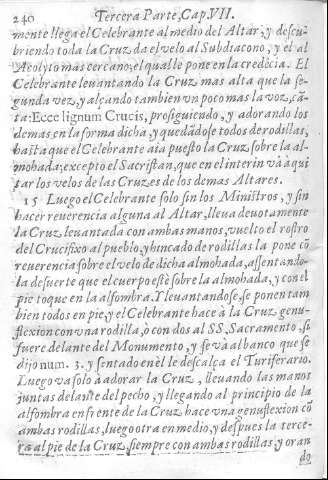 240 Tercera Parte, Cap. VII.
mente llega el Celebrante al medio del Altar, y descu-
briendo toda la Cruz da el velo al Subdiacono, y el al
Acolyto mas cercano; el qual le pone en la credẽcia. El
Celebrante leuantando la Cruz mas alta que la se-
gunda vez, y alçando tambien vn poco mas la voz, cã-
ta: Ecce lignum Crucis, prosiguiendo, y adorando los
demas en la forma dicha, y quedãdose todos de rodillas,
hasta que el Celebrante aia puesto la Cruz sobre la al-
mohada; excepto el Sacristan, que en el interin và à qui
tar los velos de las Cruzes de los demas Altares.
15 Luego el Celebrante solo sin los Ministros, y sin
hacer reuerencia alguna al Altar, lleua deuotamente
la Cruz leuantada con ambas manos, vuelto el rostro
del Crucifixo al pueblo, y hincado de rodillas la pone cõ
reuerencia sobre el velo de dicha almohada, assentando-
la de suerte que el cuerpo estè sobre la almohada, y con el
pie toque en la alfombra. Y leuantandose, se ponen tam
bien todos en pie, y el Celebrante hace à la Cruz genu-
flexion con vna rodilla, ò con dos al SS. Sacramento, si
fuere delante del Monumento, y se và al banco que se
dijo num. 3. y sentado en èl le descalça el Turiferario.
Luego va solo à adorar la Cruz, lleuando las manos
juntas delante del pecho, y llegando al principio de la
alfombra enfrente de la Cruz hace vna genuflexion cõ
ambas rodillas, luego otra en medio, y despues la terce-
ra al pie de la Cruz, siempre con ambas rodillas, y oran
do